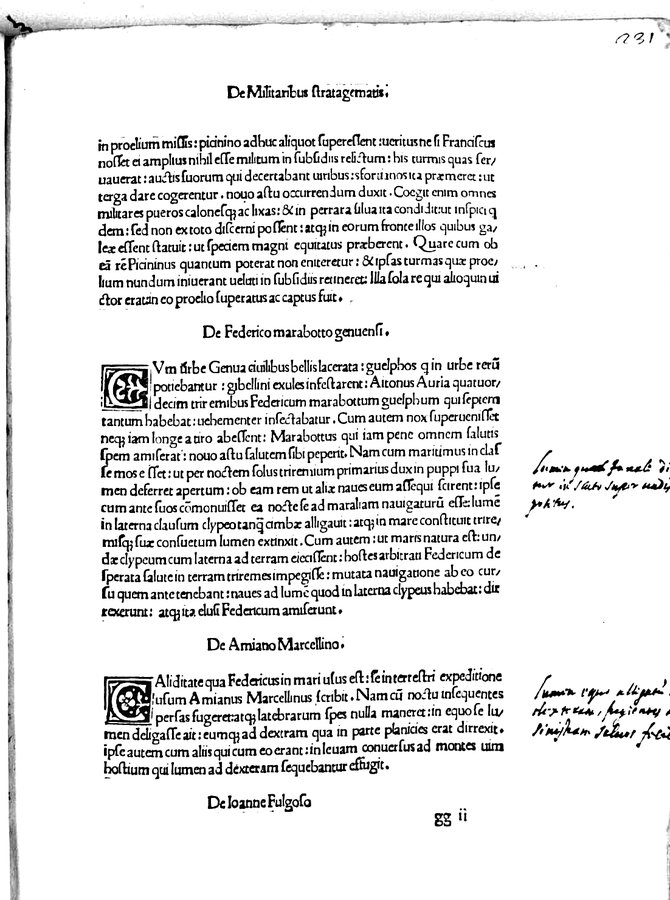 231
De Militaribus stratagematis.
in proelium missis: picinino adhuc aliquot superessent: ueritus ne si Franciscus
nosset ei amplius nihil esse militum in subsidiis relictum: his turmis quas ser/
uauerat: auctis suorum qui decertabant uiribus: sfortianos ita præmeret: ut
terga dare cogerentur. nouo astu occurrendum duxit. Coegit enim omnes
militares pueros calonesq; ac lixas: & in perrara silua ita condidit: ut inspici q
dem: sed non ex toto discerni possent: atq; in eorum fronte illos quibus ga/
leæ essent statuit: ut speciem magni equitatus præberent. Quare cum ob
eã rẽ Picininus quantum poterat non eniteretur: & ipsas turmas quæ proe/
lium nundum iniuerant ueluti in subsidiis retineret: Illa sola re qui alioquin ui
ctor erat: in eo proelio superatus ac captus fuit.
De Federico marabotto genuensi.
CVm urbe Genua ciuilibus bellis lacerata: guelphos q in urbe rerũ
potiebantur: gibellini exules infestarent: Aitonus Auria quatuor/
decim triremibus Federicum marabottum guelphum qui septem
tantum habebat: uehementer insectabatur. Cum autem nox superuenisset
neq; iam longe a tiro abessent: Marabottus qui iam pene omnem salutis
spem amiserat: nouo astu salutem sibi peperit. Nam cum maritimus in clas
se mos esset: ut per noctem solus triremium primarius dux in puppi sua lu/
men deferret apertum: ob eam rem ut aliæ naues eum assequi scirent: ipse
cum ante suos cõmonuisset ea nocte se ad maraliam nauigaturũ esse: lumẽ
in laterna clausum clypeo tanq̃ cimbæ alligauit: atq; in mare constituit trire/
misq; suæ consuetum lumen extinxit. Cum autem: ut maris natura est: un/
dæ clypeum cum laterna ad terram eiecissent: hostes arbitrati Federicum de
sperata salute in terram triremes impegisse: mutata nauigatione ab eo cur/
su quem ante tenebant: naues ad lumẽ quod in laterna clypeus habebat: dir
rexerunt: atq; ita elusi Federicum amiserunt.
De Amiano Marcellino.
CAliditate qua Federicus in mari usus est: se in terrestri expeditione
usum Amianus Marcellinus scribit. Nam cũ noctu insequentes
persas fugeret: atq; latebrarum spes nulla maneret: in equo se lu/
men deligasse ait: eumq; ad dextram qua in parte planicies erat dirrexit.
ipse autem cum aliis qui cum eo erant: in leuam conuersus ad montes uim
hostium qui lumen ad dexteram sequebantur effugit.
De Ioanne Fulgoso
gg ii